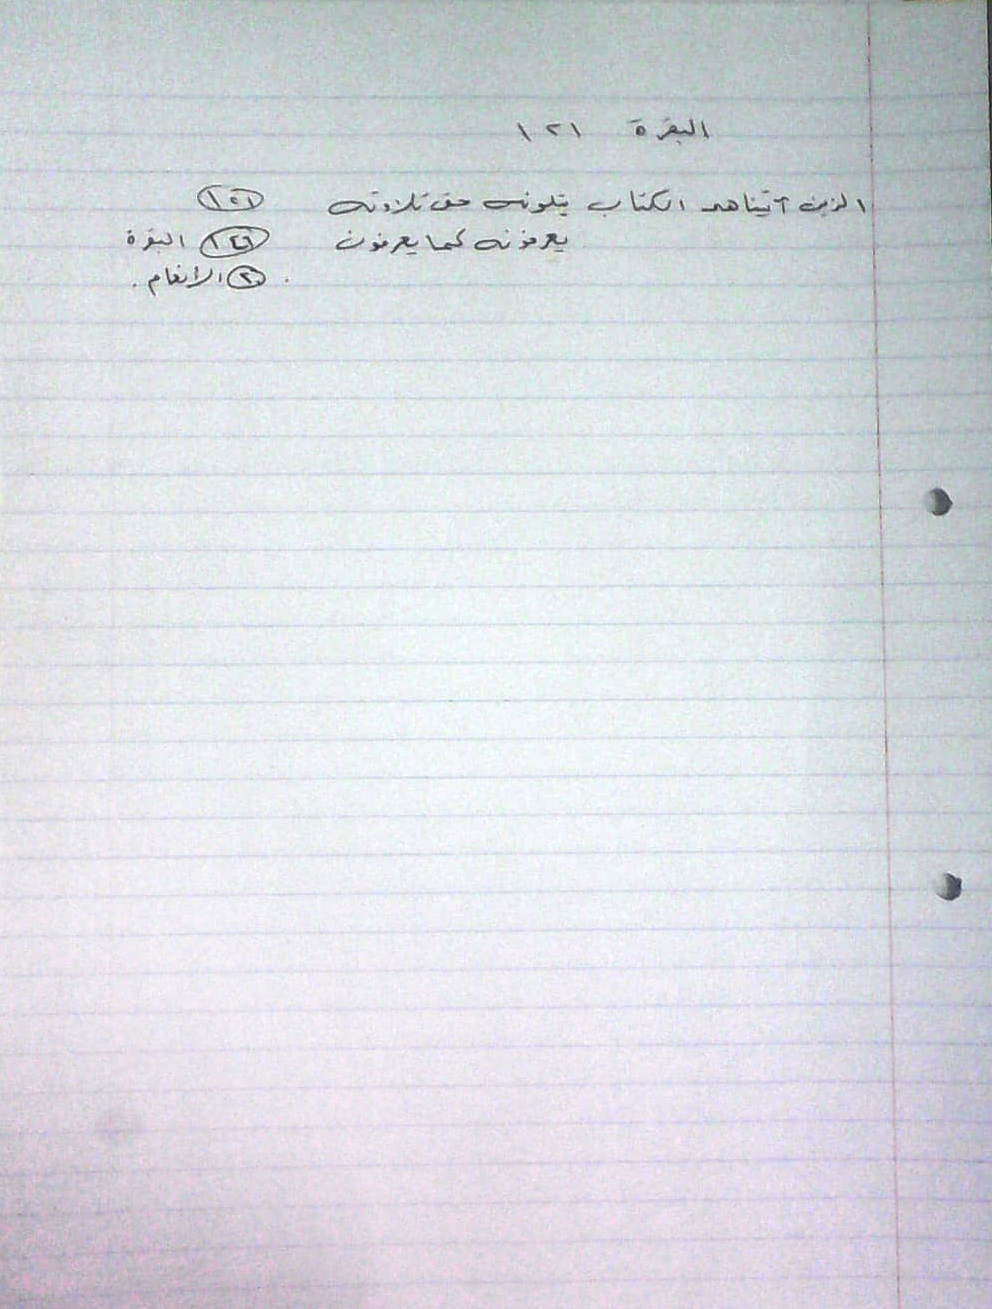 البقرة ١٢١
الذين آتيناهم الكتاب يتلونه حق تلاوته ١٢١
يعرفونه كما يعرفون ١٤٦ البقرة
٢٠ الانعام.